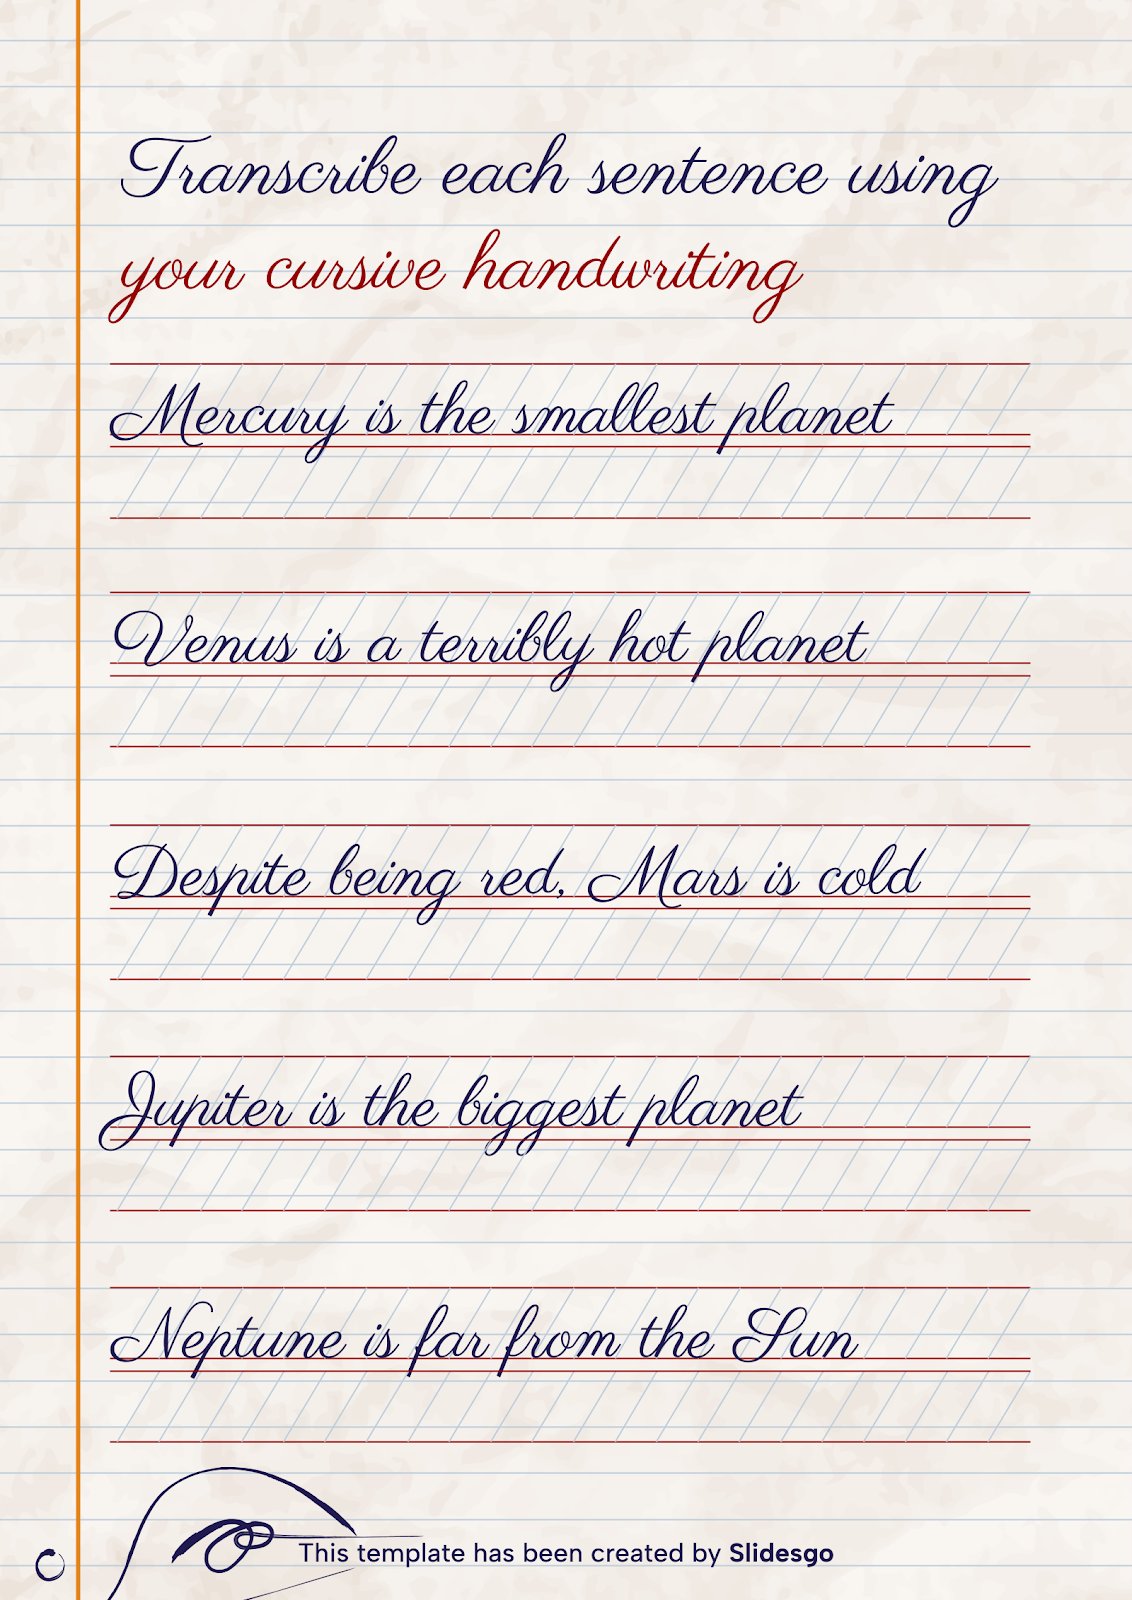 Transcribe each sentence using
your cursive handwriting
Mercury is the smallest planet
Venus is a terribly hot planet
Despite being red, Mars is cold
Jupiter is the biggest planet
Neptune is far from the Sun
This template has been created by Slidesgo